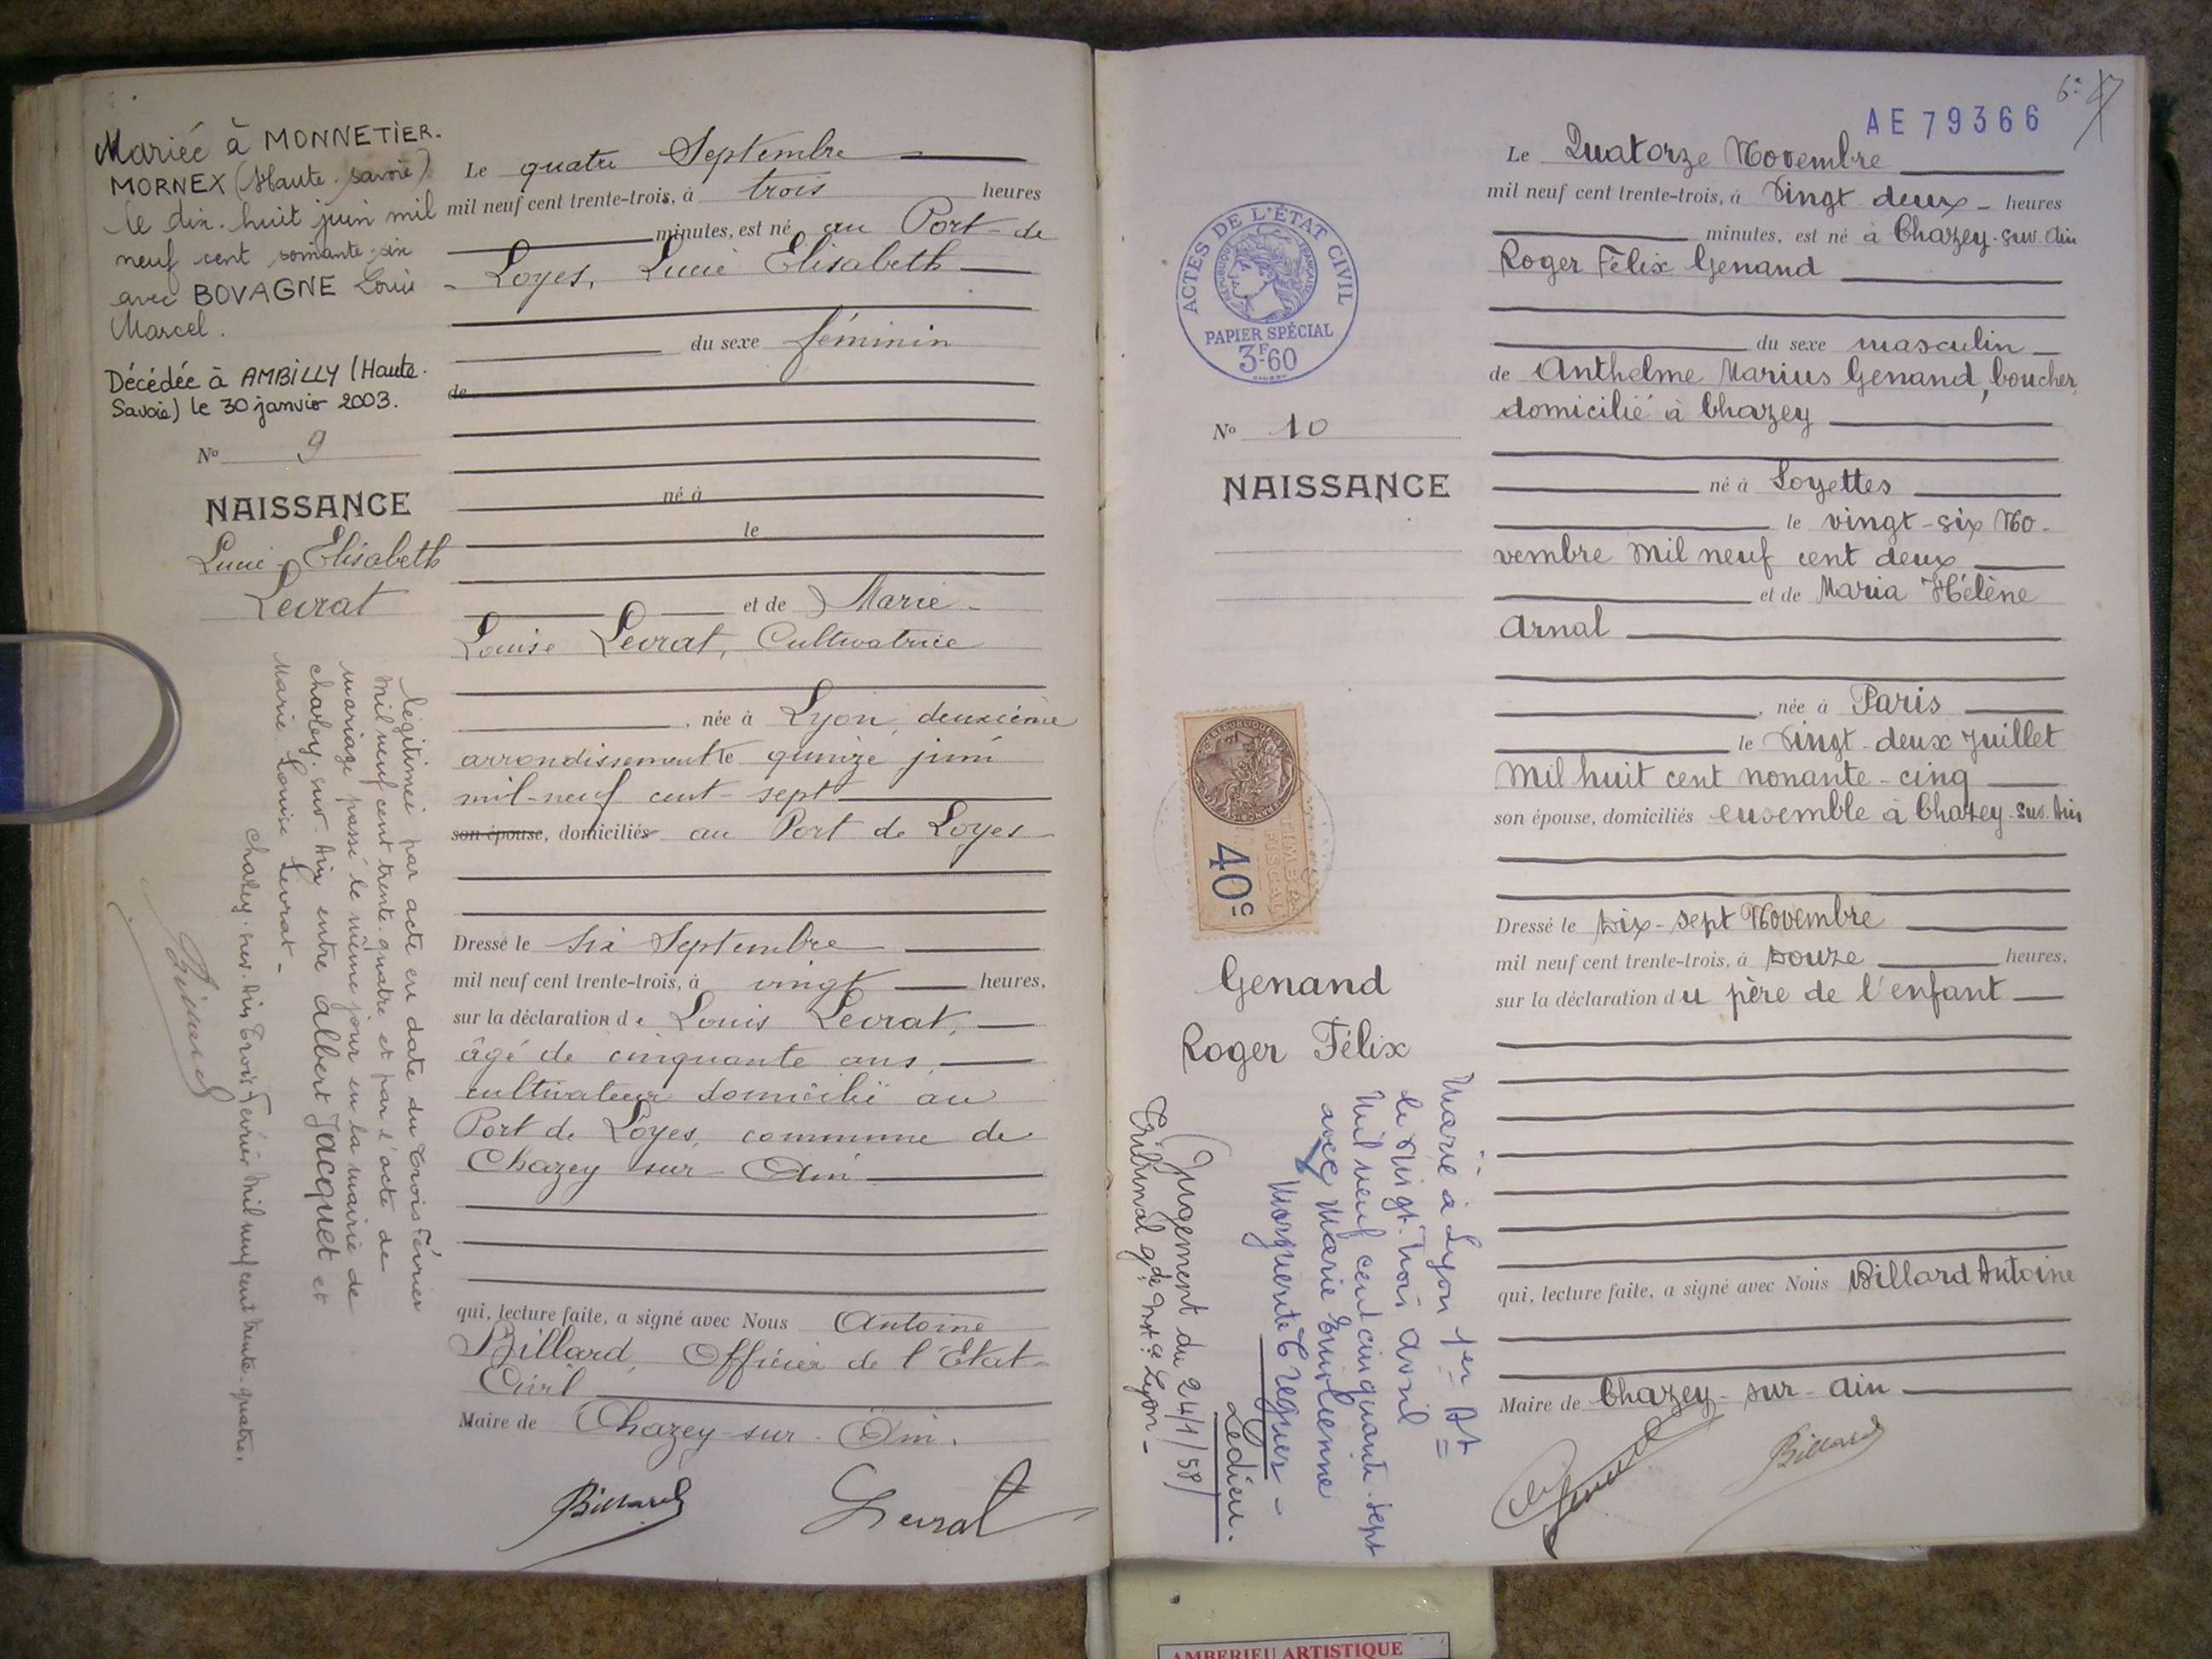 Mariée à MONNETIER-
MORNEX (Haute-Savoie)
le dix-huit juin mil
neuf cent soixante six
avec BOVAGNE Louis
Marcel.
Décédée à AMBILLY (Haute-
Savoie) le 30 janvier 2003.
No 9
NAISSANCE
Lucie Elisabeth
Levrat
légitimée par acte en date du trois Février
mil neuf cent trente-quatre et par l'acte de
mariage passé le même jour en la mairie de
chazey-sur-Ain entre Albert Jacquet et
Marie Louise Levrat-
chazey-sur-Ain trois Février mil neuf cent trente-quatre.
Le quatre Septembre
mil neuf cent trente-trois, à trois heures
minutes, est né au Port-de
Loyes, Lucie Elisabeth
du sexe féminin
de
né à
le
et de Marie
Louise Levrat, Cultivatrice
, née à Lyon, deuxième
arrondissement le quinze juin
mil-neuf cent-sept
son épouse, domiciliés au Port de Loyes
Dressé le Six Septembre
mil neuf cent trente-trois, à vingt heures,
sur la déclaration de Louis Levrat,
âgé de cinquante ans,
cultivateur domicilié au
Port de Loyes, commune de
Chazey-sur-Ain
qui, lecture faite, a signé avec Nous Antoine
Billard, Officier de l'Etat-
Civil
Maire de Chazey-sur-Ain.
Billard Levrat
AE79366
ACTES DE L'ÉTAT CIVIL
RÉPUBLIQUE FRANÇAISE
PAPIER SPÉCIAL
3F60
No 10
NAISSANCE
TIMBRE
FISCAL
40c
Genand
Roger Félix
Marié à Lyon 1er At
le vingt-trois avril
mil neuf cent cinquante-sept
avec Marie Emilienne
Marguerite Treguer-
Ledieu.
Jugement du 24/1/58/
Tribunal gde Inst. Lyon-
Le Quatorze Novembre
mil neuf cent trente-trois, à Vingt deux heures
minutes, est né à Chazey-sur-Ain
Roger Félix Genand
du sexe masculin
de Anthelme Marius Genand, boucher,
domicilié à Chazey
né à Loyettes
le vingt-six No-
vembre mil neuf cent deux
et de Maria Hélène
Arnal
, née à Paris
le Vingt-deux Juillet
mil huit cent nonante-cinq
son épouse, domiciliés ensemble à Chazey-sur-Ain
Dressé le Dix-sept Novembre
mil neuf cent trente-trois, à Douze heures,
sur la déclaration du père de l'enfant
qui, lecture faite, a signé avec Nous Billard Antoine
Maire de Chazey-sur-Ain
Genand Billard
AMBERIEU ARTISTIQUE